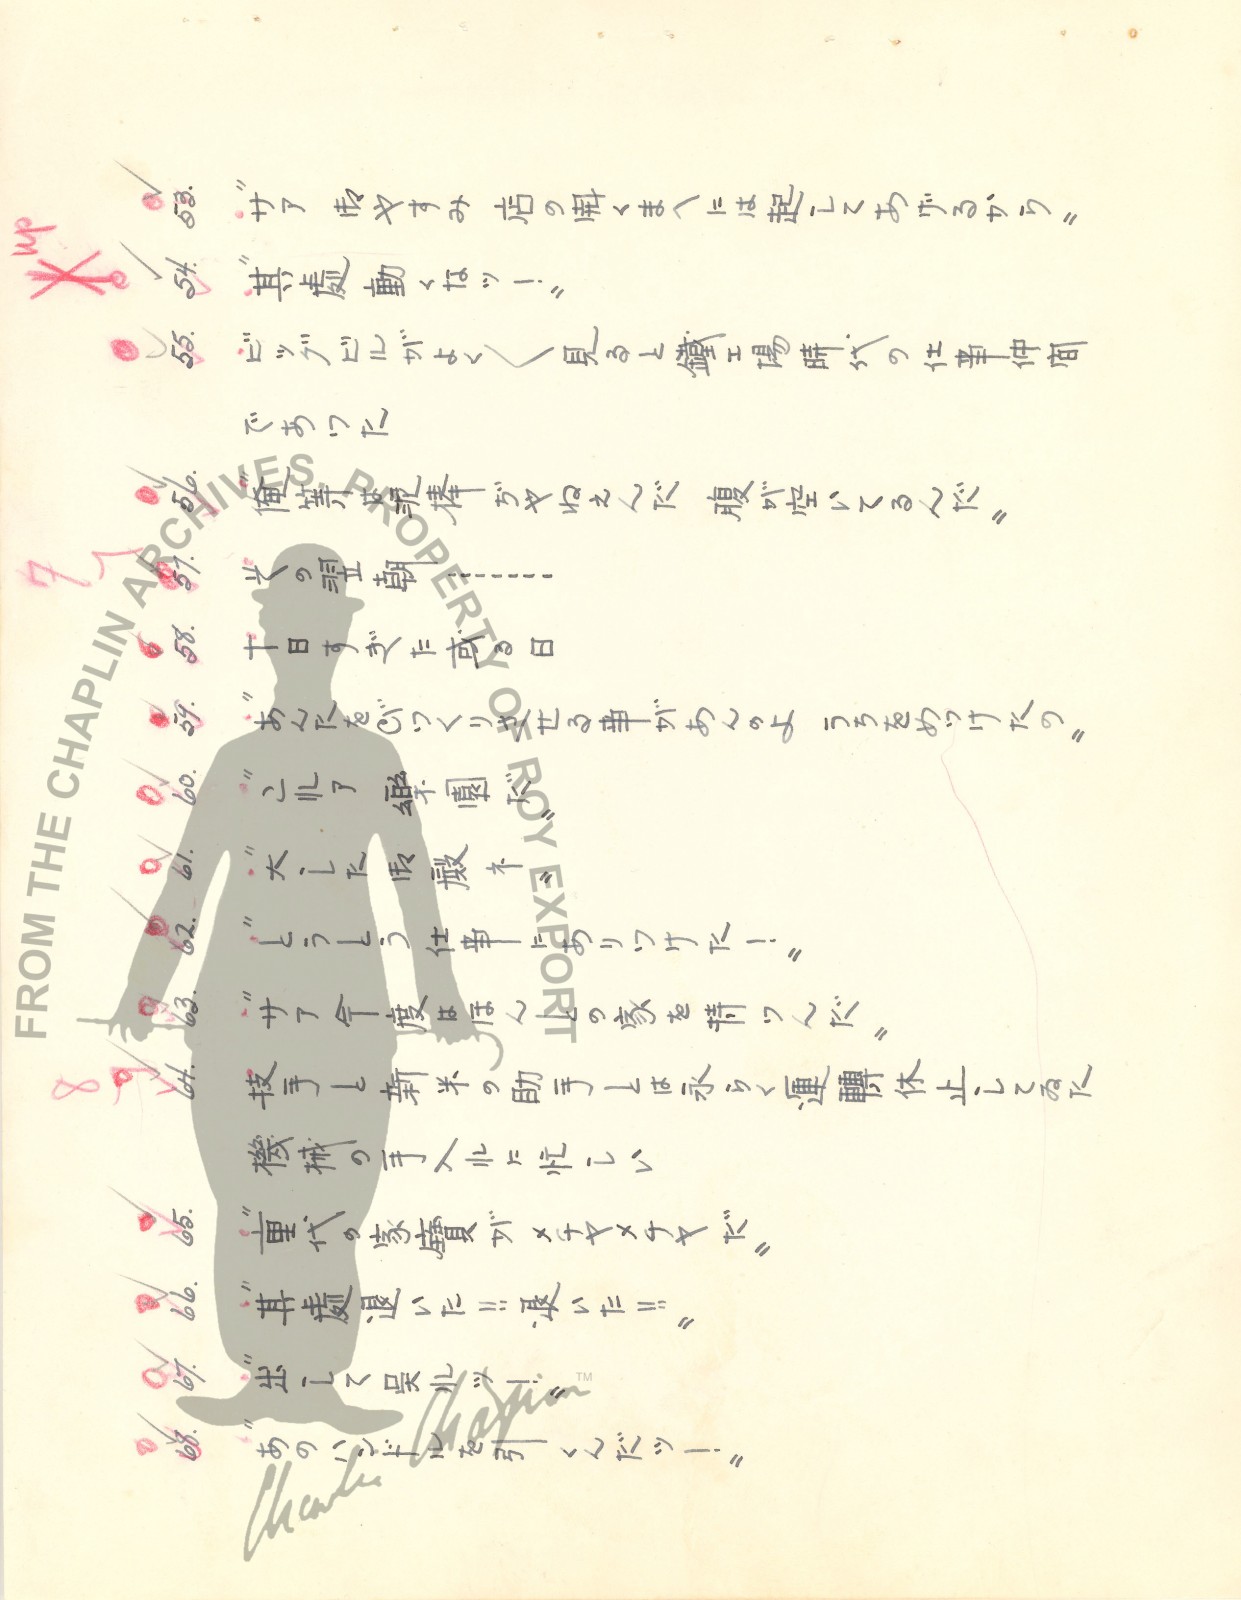 53. "サア 御やすみ 店の開くまへには起してあげるから"
up
54. "其處動くなッ!"
55. ビッグビルがよく〱見ると鐵工場時代の仕事仲間
であつた
56. "俺等は泥棒ぢやねえんだ 腹が空いてるんだ"
7
57. 此の翌朝--------
58. 十日すぎた或る日
59. "あんたをびつくりさせる事があんのよ うちをめつけたの"
60. "これア 樂園だ"
61. "大した御殿ネ"
62. "とうとう仕事にありつけた!"
63. "サア今度はほんとの家を持つんだ"
8
64. 技手と新米の助手とは永らく運轉休止してゐた
機械の手入れに忙しい
65. "重代の家寶がメチヤメチヤだ"
66. "其處退いた!!退いた!!"
67. "出して呉れッ!"
68. "あのハンドルを引くんだッ!"
FROM THE CHAPLIN ARCHIVES, PROPERTY OF ROY EXPORT
Charlie Chaplin TM